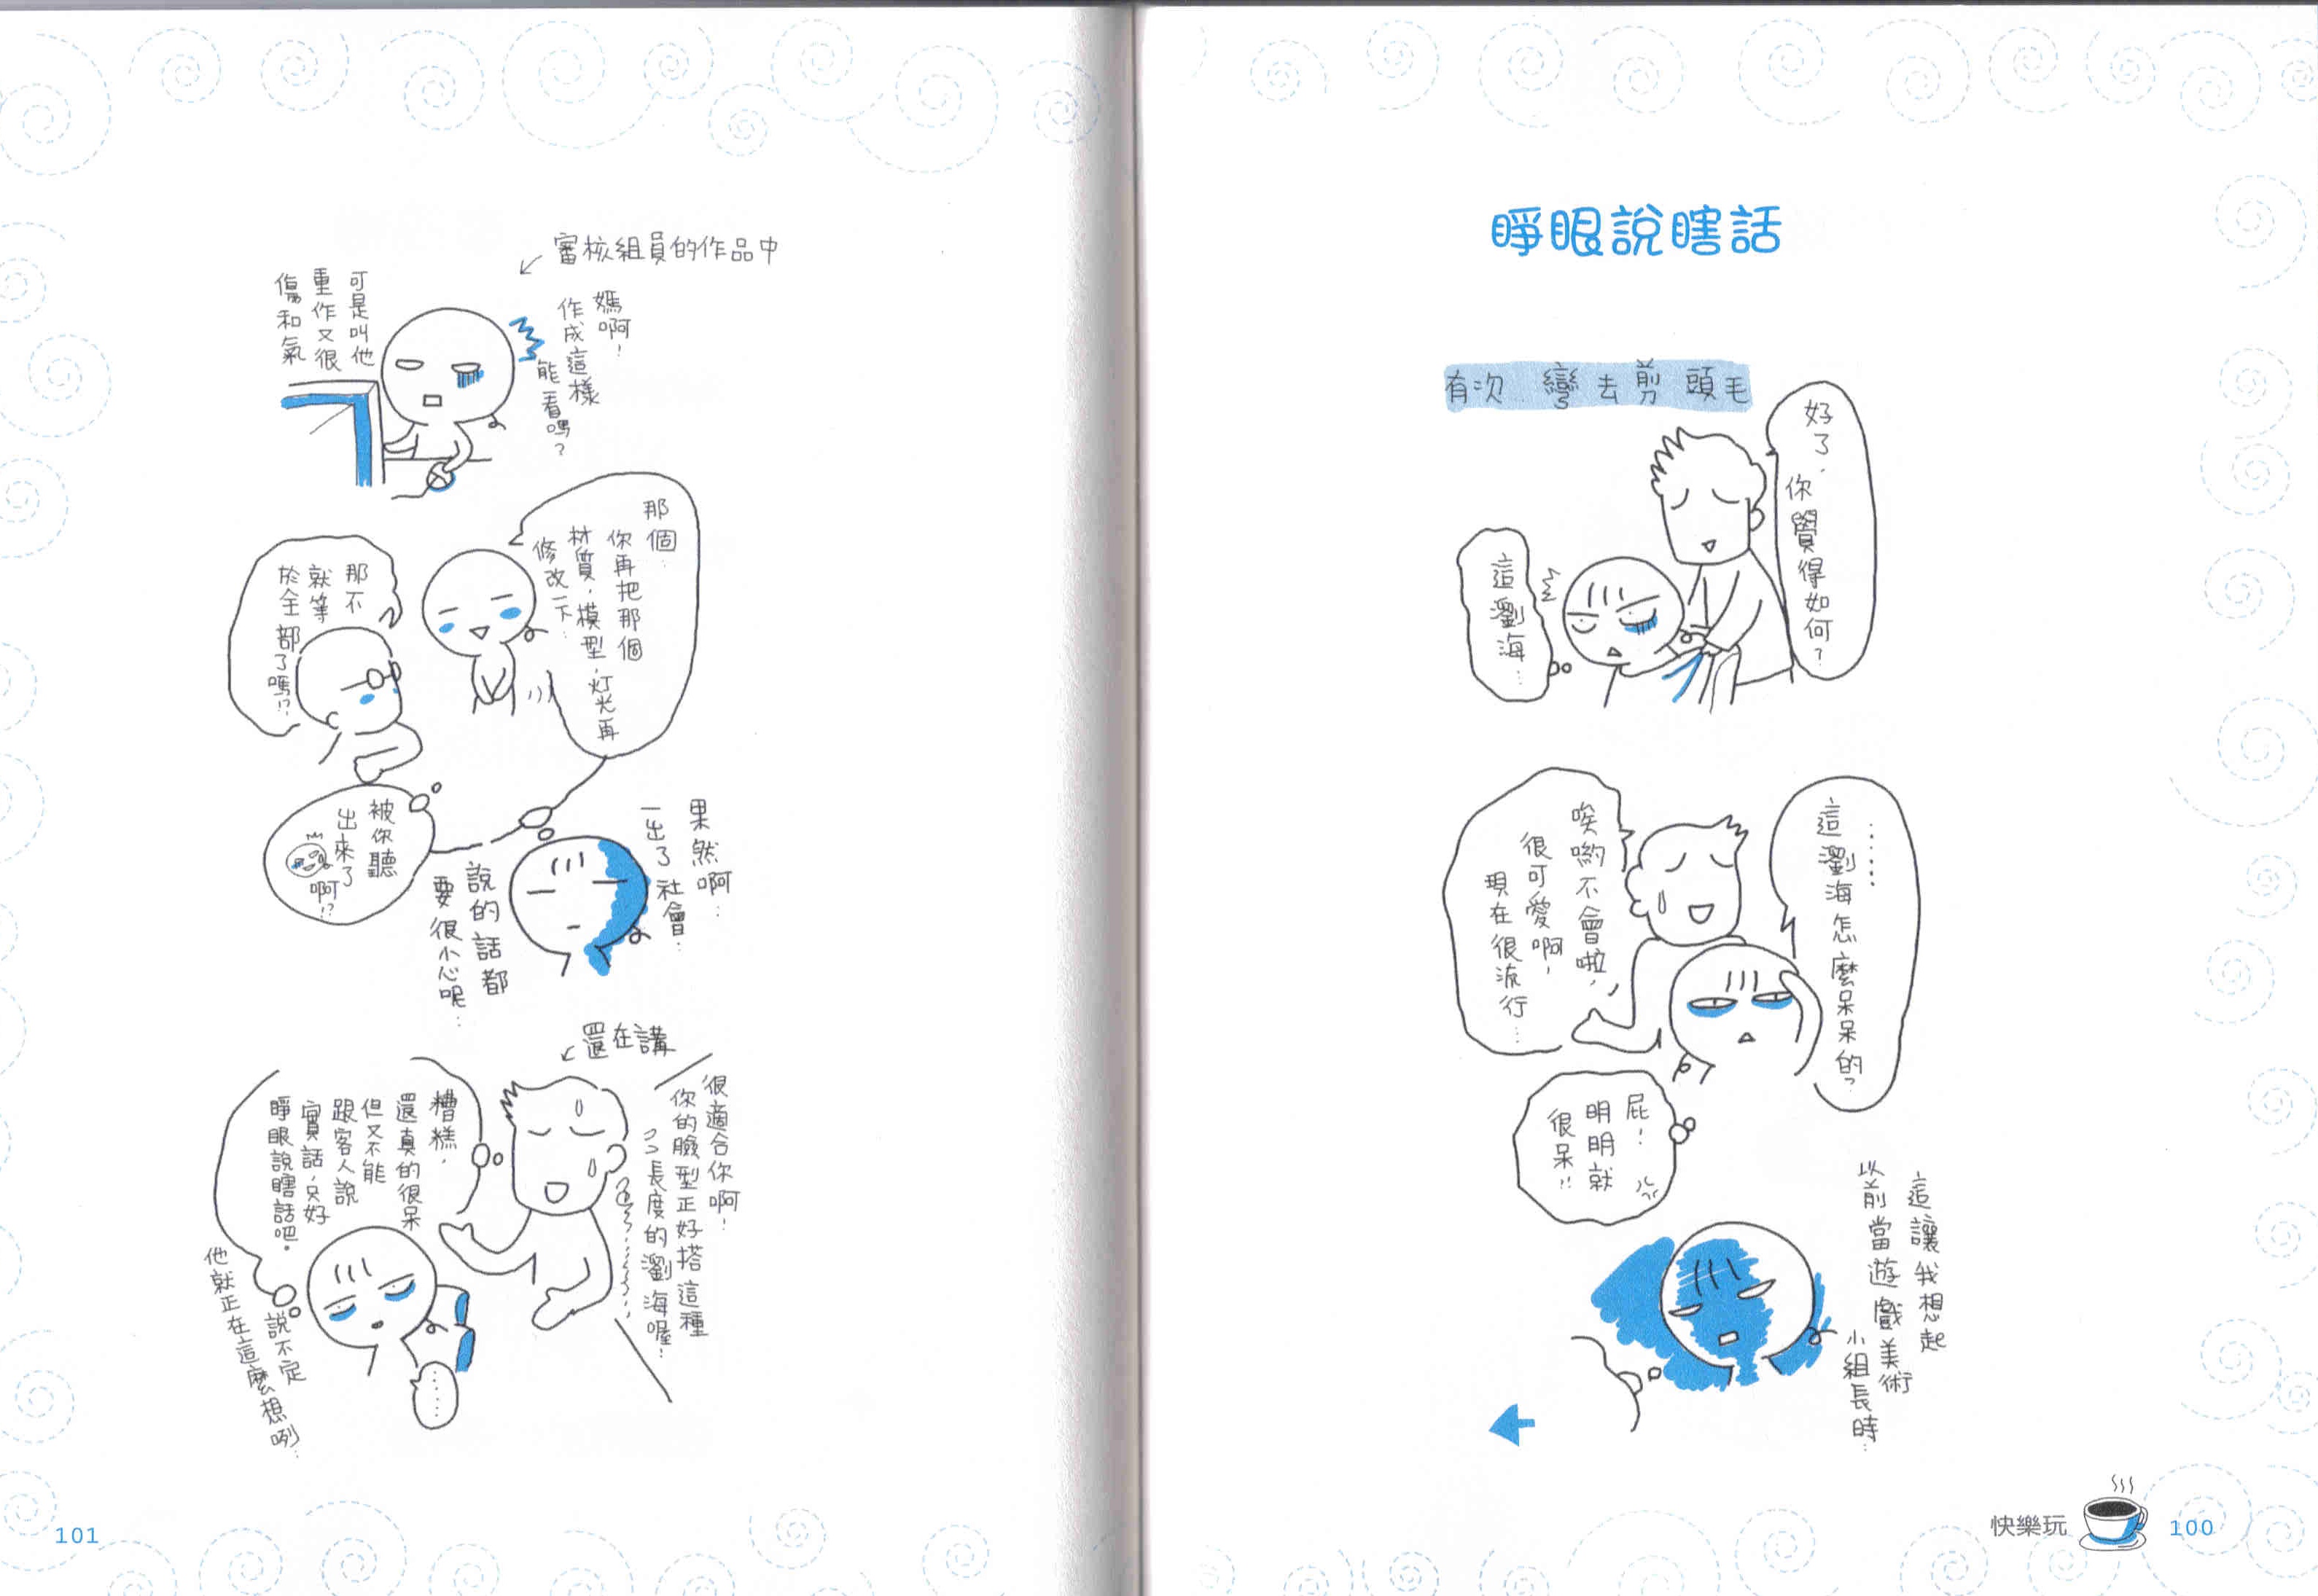 睜眼說瞎話
有次 彎彎去剪頭毛
好了，
你覺得如何？
這瀏海…
……
這瀏海怎麼呆呆的？
唉喲不會啦，
很可愛啊，
現在很流行…
屁！
明明就
很呆！！
這讓我想起
以前當遊戲美術
小組長時…
快樂玩
100
審核組員的作品中
媽啊！
作成這樣
能看嗎？
可是叫他
重作又很
傷和氣
那個…
你再把那個
材質，模型，灯光再
修改一下…
那不
就等
於全部了嗎！？
被你聽
出來了
啊！？
果然啊…
一出了社會…
說的話都
要很小心呢…
還在講
很適合你啊！
你的臉型正好搭這種
長度的瀏海喔！
糟糕，
還真的很呆
但又不能
跟客人說
實話，只好
睜眼說瞎話吧。
說不定
他就正在這麼想咧…
……
101